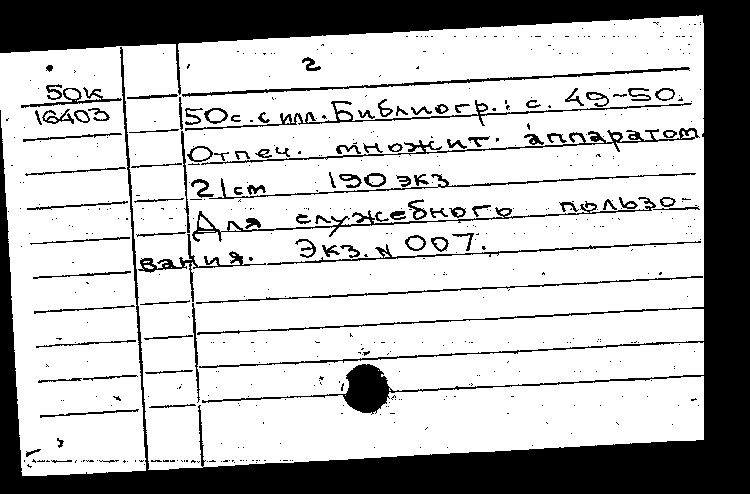 2
50к
16403
50с. с илл. Библиогр.: с. 49-50.
Отпеч. множит. аппаратом.
21 cm 190 экз
Для служебного пользо-
вания. Экз. N 007.